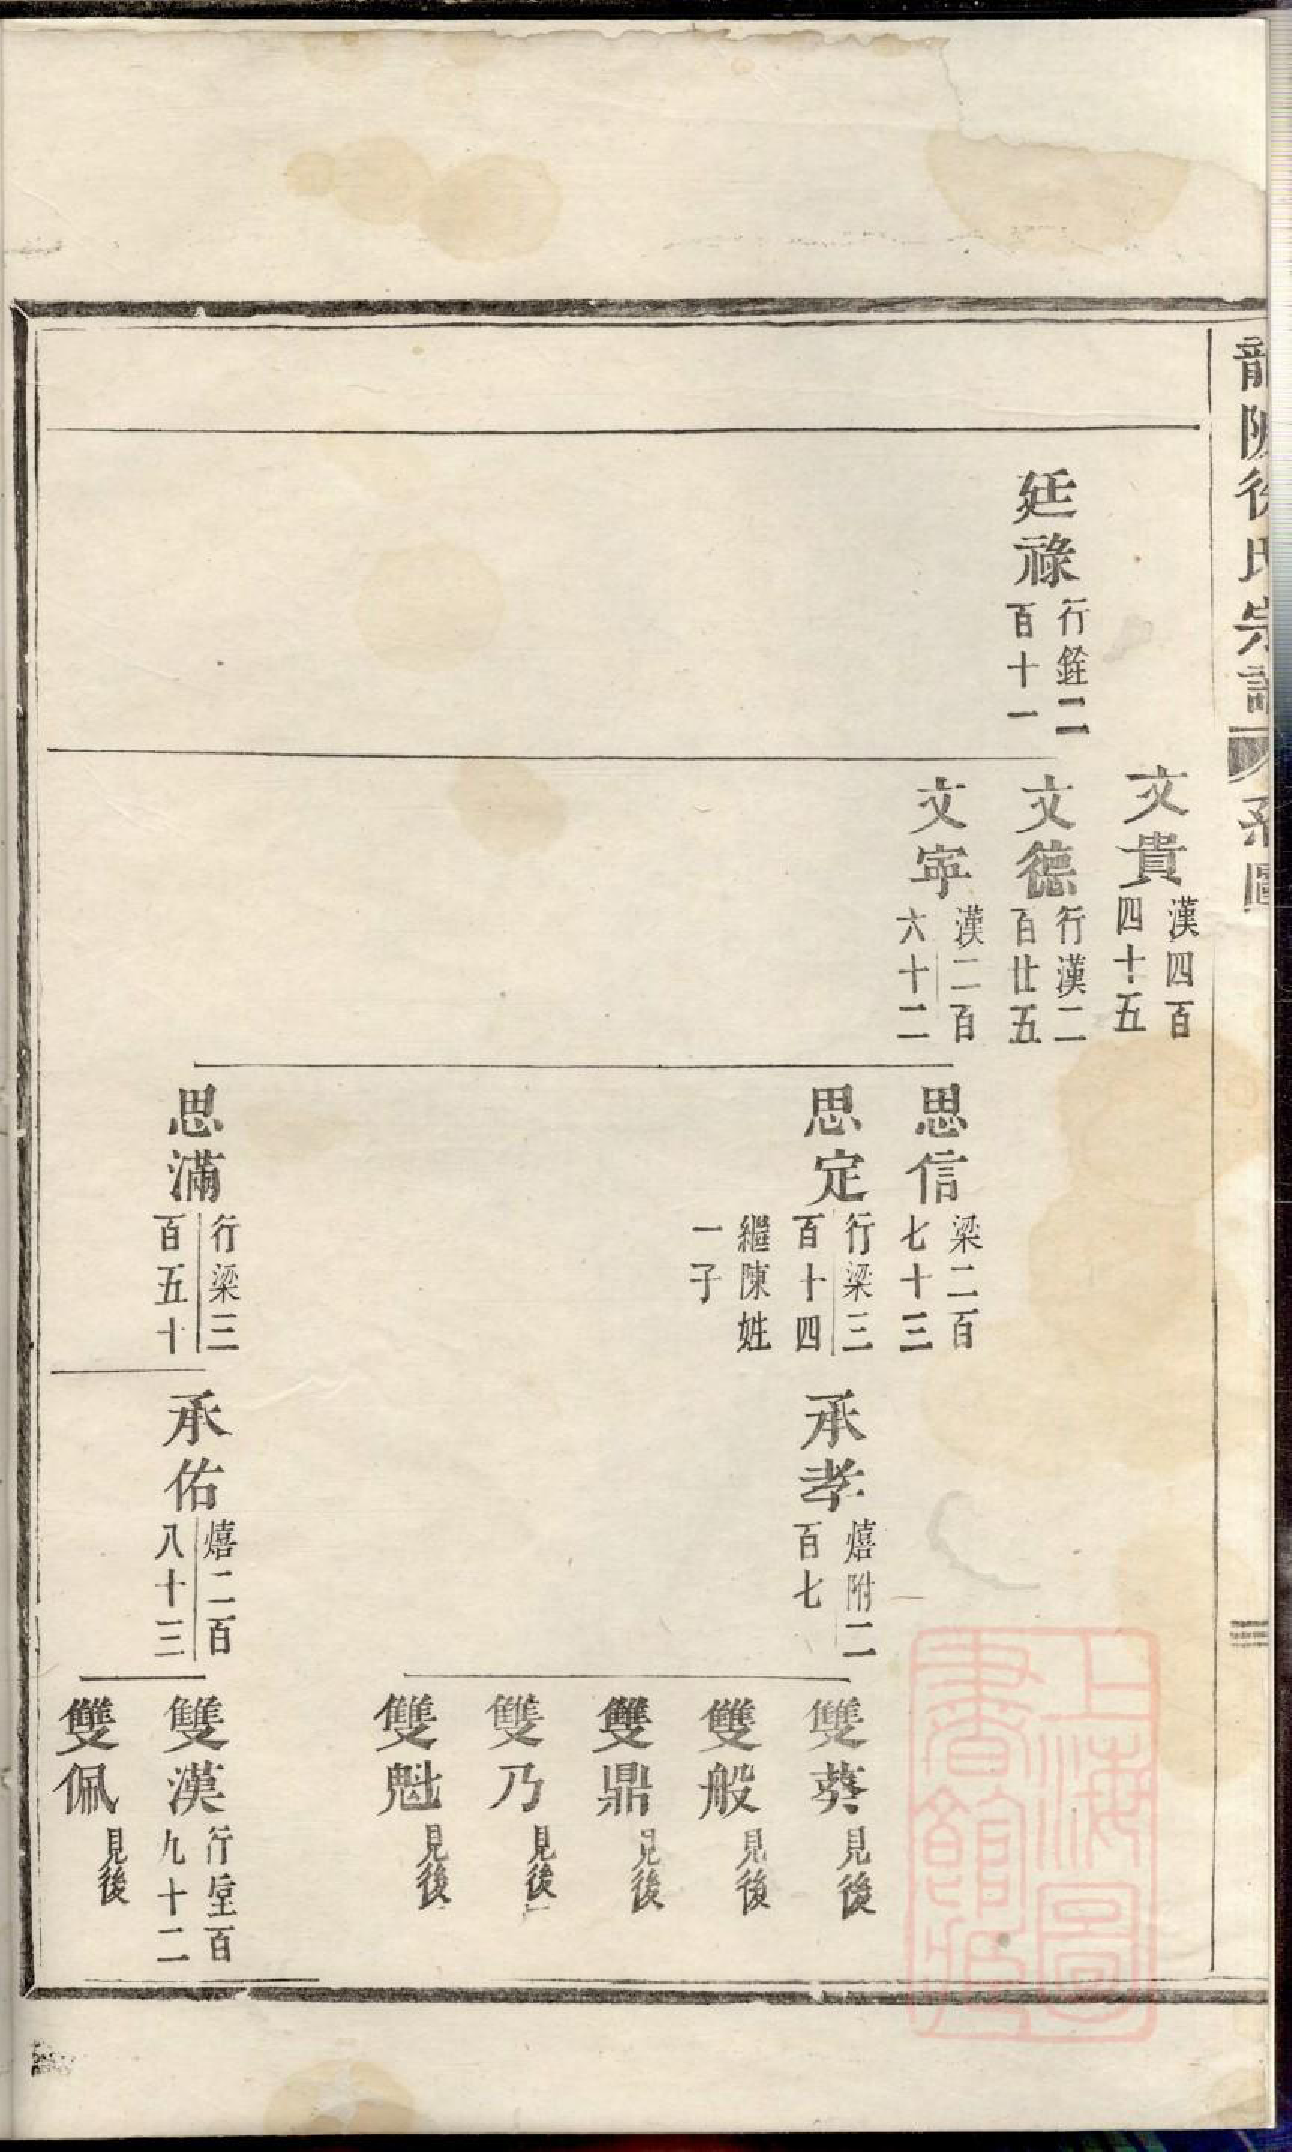 龍陂徐氏宗譜 系圖
廷祿 行銓二百十一
文貴 漢四百四十五
文德 行漢二百廿五
文寜 漢二百六十二
思信 梁二百七十三
思定 行梁三百十四 繼陳姓一子
思滿 行梁三百五十
承孝 熺附二百七
承佑 熺二百八十三
雙葵 見後
雙般 見後
雙鼎 見後
雙乃 見後
雙魁 見後
雙漢 行堂百九十二
雙佩 見後
上海圖書館藏